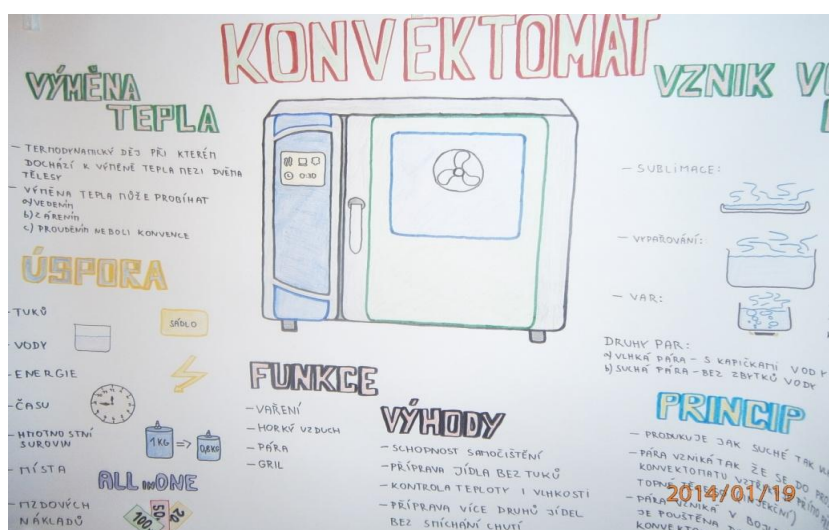 KONVEKTOMAT
VÝMĚNA
TEPLA
- TERMODYNAMICKÝ DĚJ PŘI KTERÉM
DOCHÁZÍ K VÝMĚNĚ TEPLA MEZI DVĚMA
TĚLESY
- VÝMĚNA TEPLA MŮŽE PROBÍHAT
a) VEDENÍM
b) ZÁŘENÍM
c) PROUDĚNÍM NEBOLI KONVENCE
ÚSPORA
- TUKŮ
SÁDLO
- VODY
- ENERGIE
- ČASU
- HMOTNOSTNÍ
SUROVIN
1KG => 0,8KG
- MÍSTA
ALL IN ONE
- MZDOVÝCH
NÁKLADŮ
100 50 20
0:30
FUNKCE
- VAŘENÍ
- HORKÝ VZDUCH
- PÁRA
- GRIL
VÝHODY
- SCHOPNOST SAMOČIŠTĚNÍ
- PŘÍPRAVA JÍDLA BEZ TUKŮ
- KONTROLA TEPLOTY I VLHKOSTI
- PŘÍPRAVA VÍCE DRUHŮ JÍDEL
BEZ SMÍCHÁNÍ CHUTÍ
VZNIK
- SUBLIMACE:
- VYPAŘOVÁNÍ:
- VAR:
DRUHY PAR:
a) VLHKÁ PÁRA - S KAPIČKAMI VODY
b) SUCHÁ PÁRA - BEZ ZBYTKŮ VODY
PRINCIP
- PRODUKUJE JAK SUCHÉ TAK
- PÁRA VZNIKÁ TAK ŽE SE DO
KONVEKTOMATU
TOPNÉ
- PÁRA VZNIKÁ V
JE POUŠTĚNA
2014/01/19